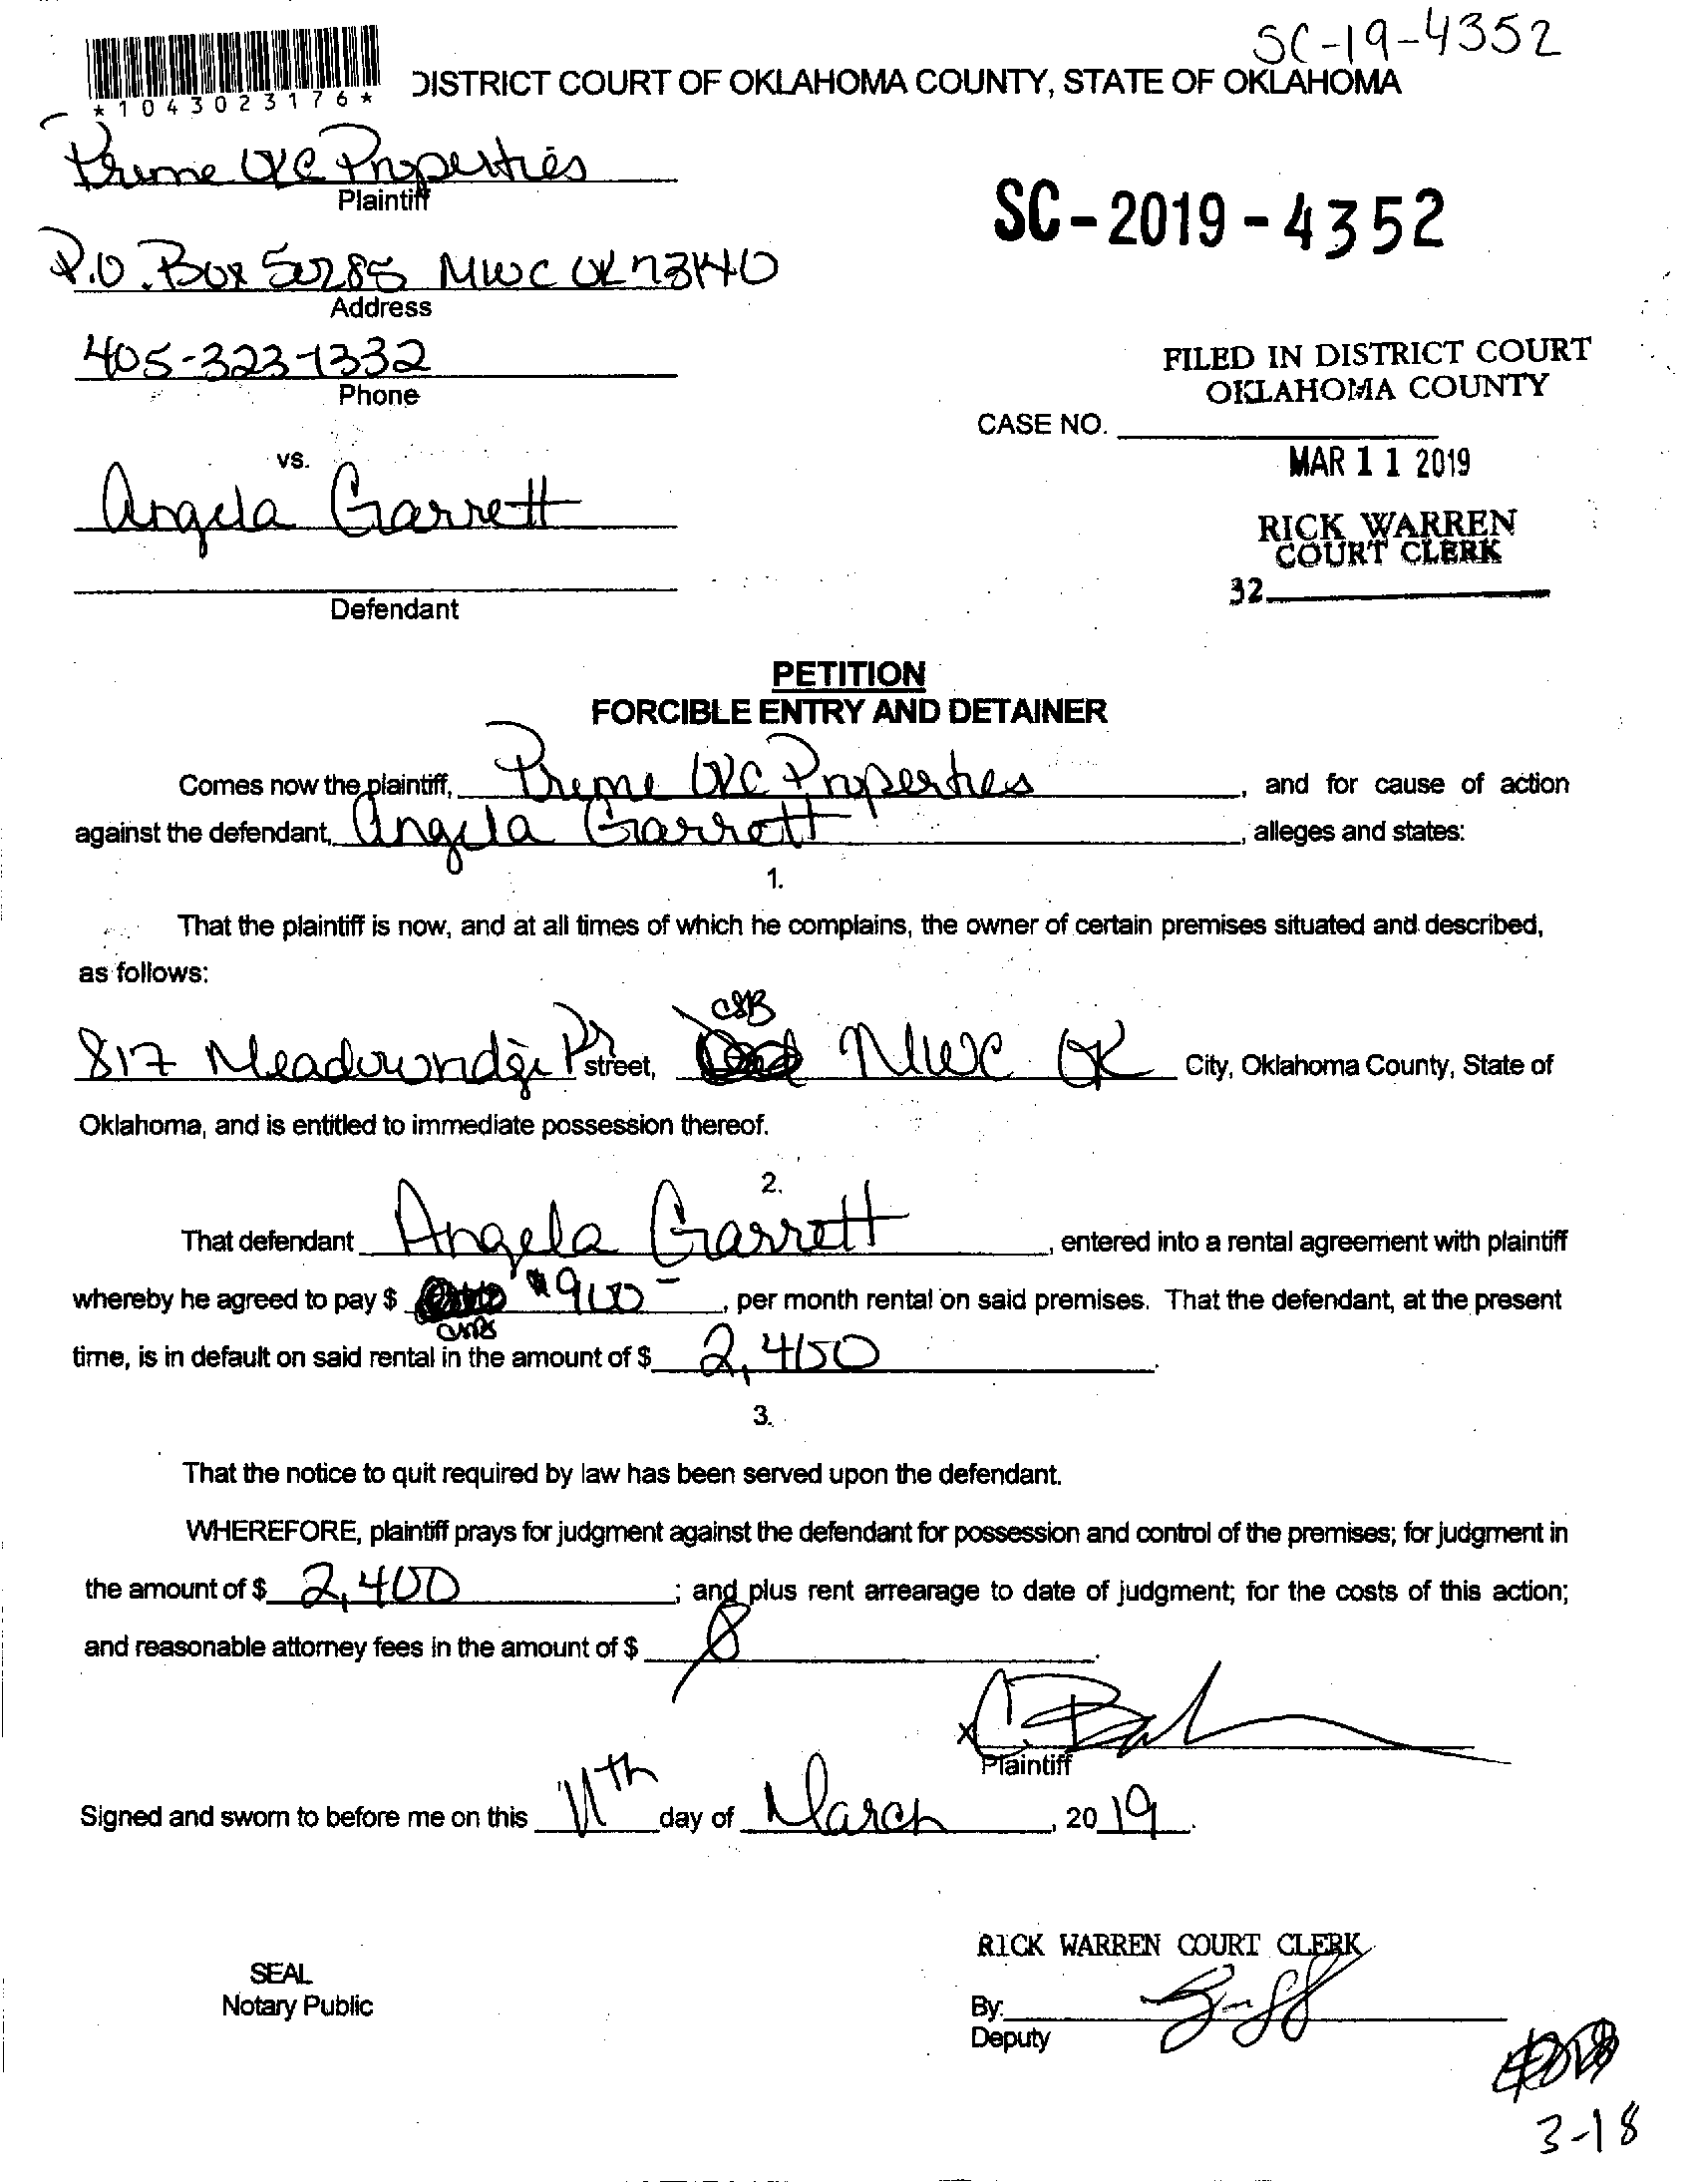 SC-19-4352
*1043023176*
DISTRICT COURT OF OKLAHOMA COUNTY, STATE OF OKLAHOMA
Preme OKC Properties
Plaintiff
SC-2019-4352
P.O. Box 50285 MWC OK 73140
Address
405-323-1332
Phone
FILED IN DISTRICT COURT
OKLAHOMA COUNTY
CASE NO.
vs.
MAR 11 2019
Angela Garrett
RICK WARREN
COURT CLERK
32
Defendant
PETITION
FORCIBLE ENTRY AND DETAINER
Comes now the plaintiff, Preme OKC Properties, and for cause of action
against the defendant, Angela Garrett, alleges and states:
1.
That the plaintiff is now, and at all times of which he complains, the owner of certain premises situated and described,
as follows:
817 Meadowridge Dr street, MWC OK City, Oklahoma County, State of
Oklahoma, and is entitled to immediate possession thereof.
2.
That defendant Angela Garrett, entered into a rental agreement with plaintiff
whereby he agreed to pay $ $900-, per month rental on said premises. That the defendant, at the present
time, is in default on said rental in the amount of $ 2,400.
3.
That the notice to quit required by law has been served upon the defendant.
WHEREFORE, plaintiff prays for judgment against the defendant for possession and control of the premises; for judgment in
the amount of $ 2,400; and plus rent arrearage to date of judgment; for the costs of this action;
and reasonable attorney fees in the amount of $ .
x
Plaintiff
Signed and sworn to before me on this 11th day of March, 2019.
RICK WARREN COURT CLERK
SEAL
Notary Public
By:
Deputy
3-18